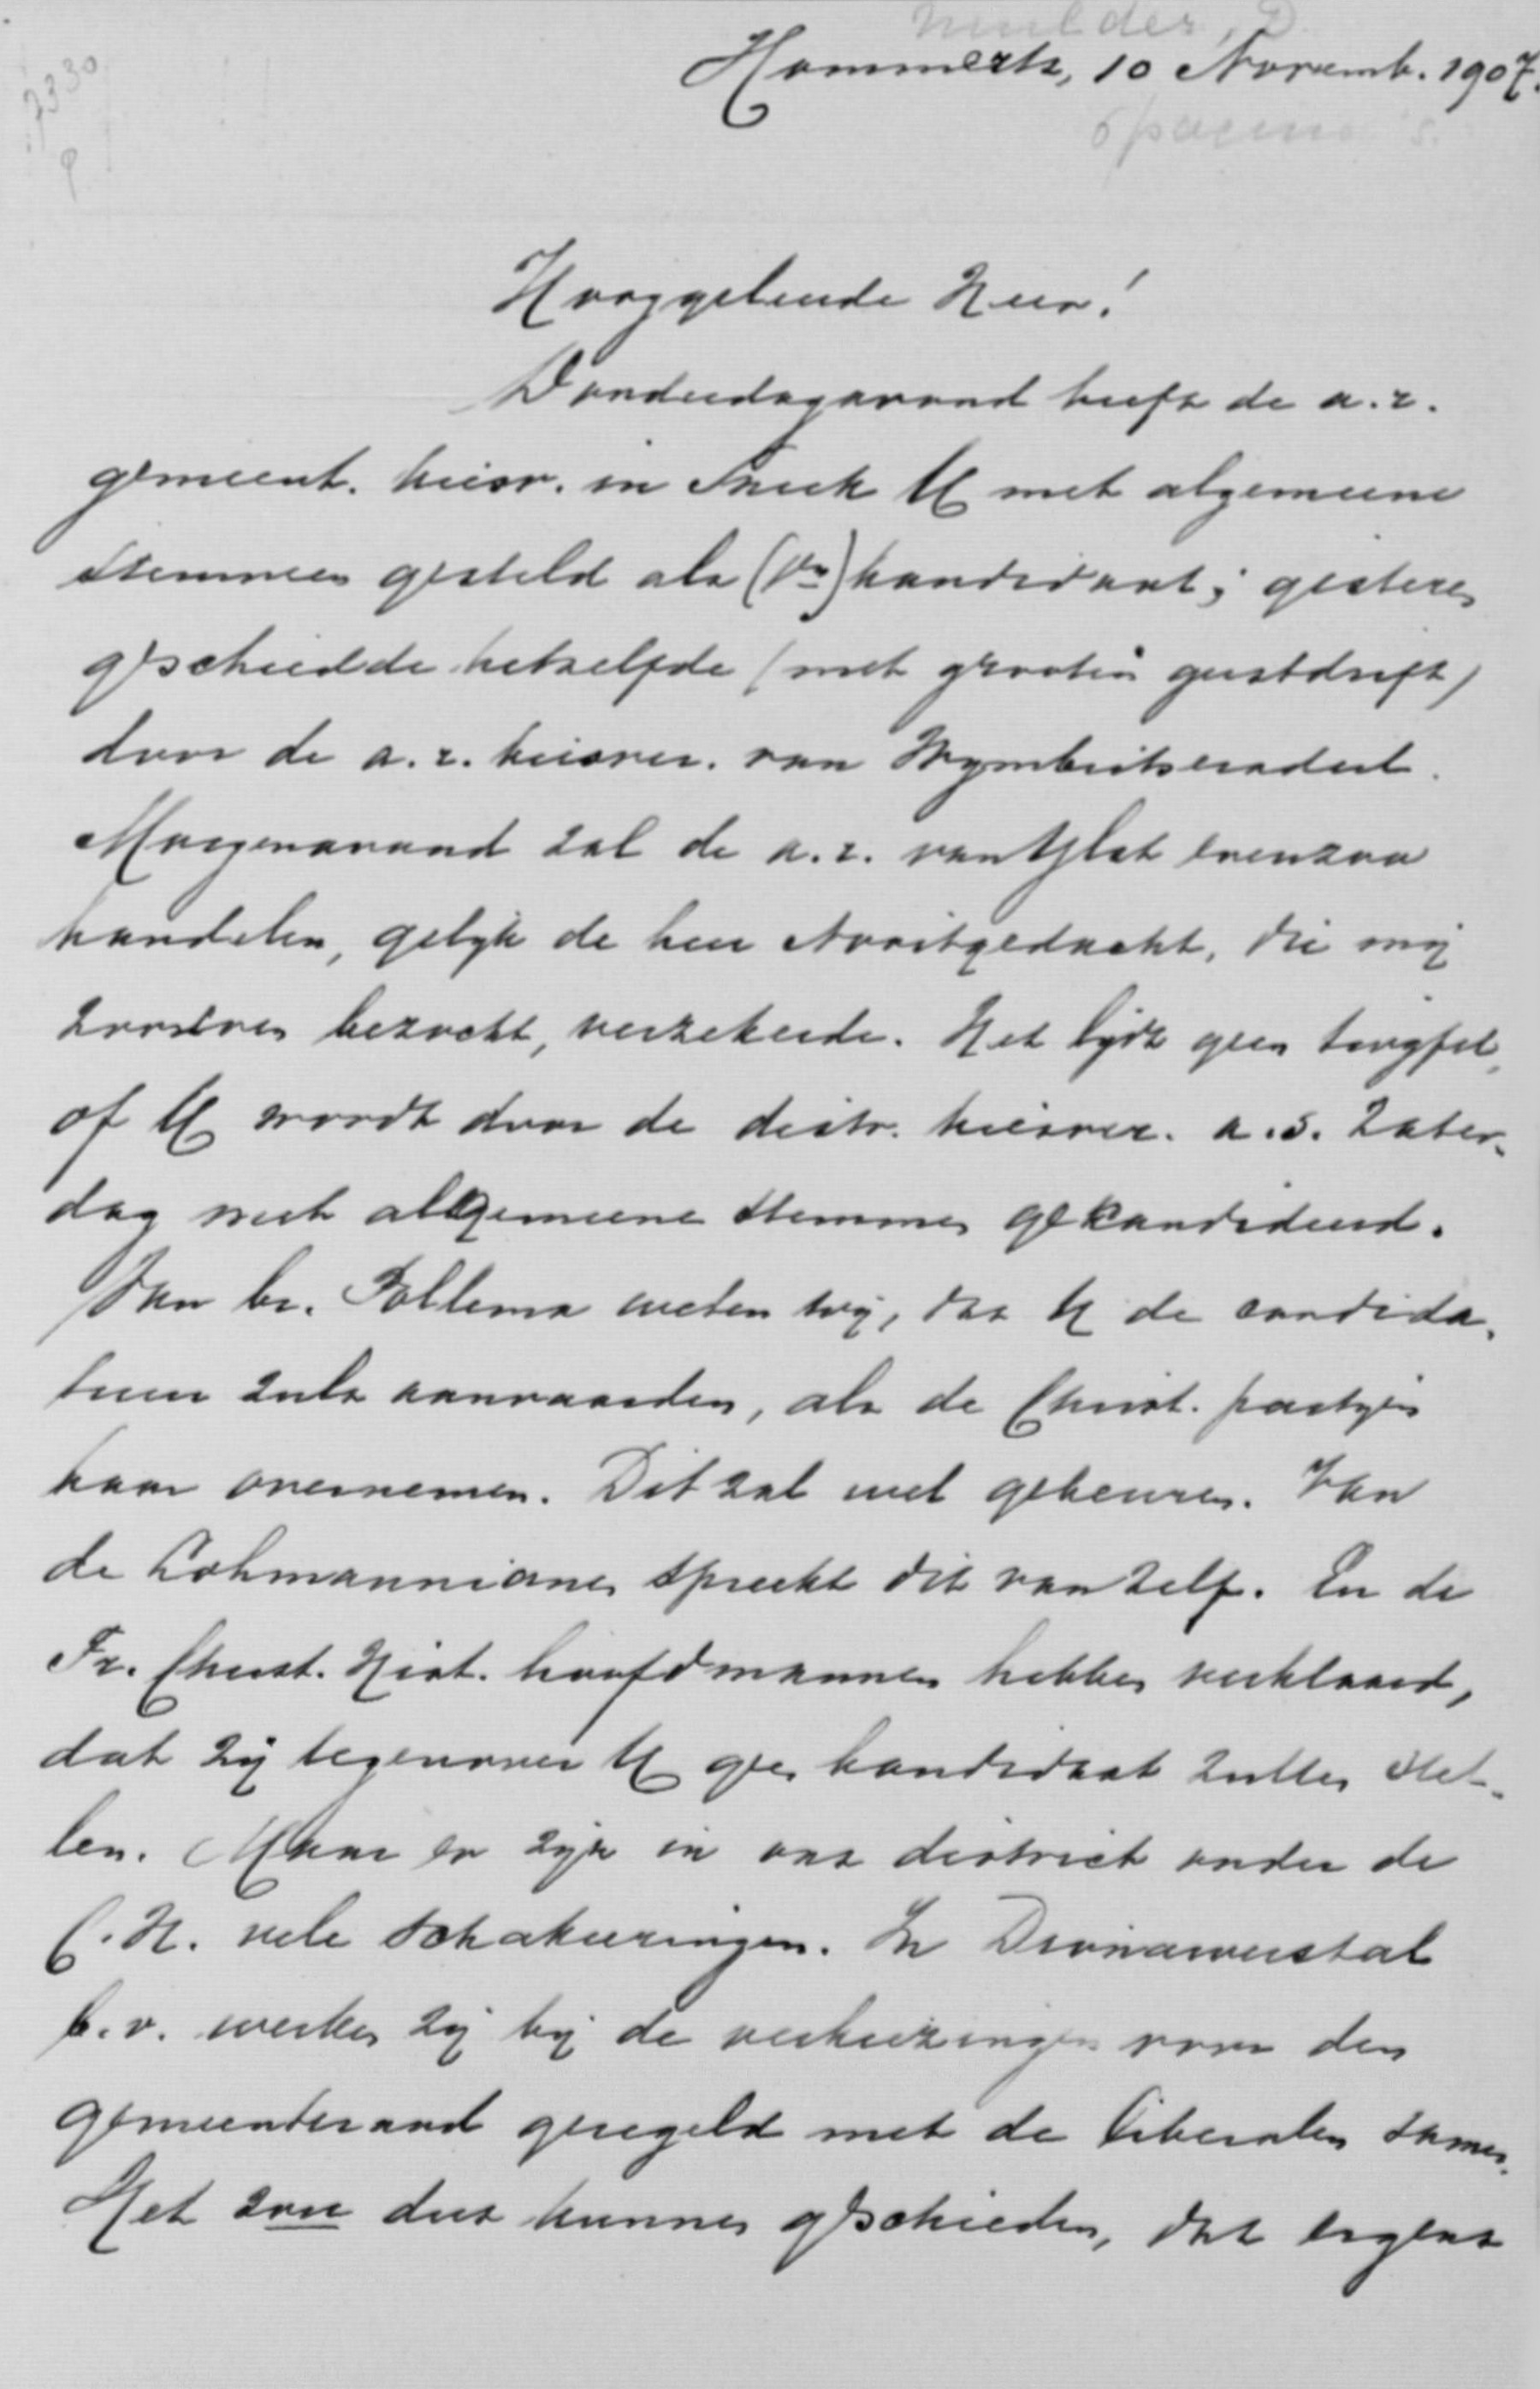 Mulder, D
7330
Hommerts, 10 Novemb. 1907.
6 pagina's.
Hooggeleerde Heer!
Donderdagavond heeft de a.r.
gemeent. kiesv. in Sneek U met algemeene
stemmen gesteld als (vr) kandidaat; gisteren
geschiedde hetzelfde (met grooten geestdrift)
door de a.r. kiesver. van Wymbritseradeel.
Morgenavond zal de a.r. van IJlst evenzoo
handelen, gelijk de heer Nooitgedacht, die mij
zooeven bezocht, verzekerde. Het lijdt geen twijfel,
of U wordt door de distr. kiesver. a.s. Zater-
dag met allgemeene stemmen gekandideerd.
Van br. Pollema weten wij, dat U de candida-
tuur zult aanvaarden, als de Christ. partijen
haar overnemen. Dit zal wel gebeuren. Van
de Lohmannianen spreekt dit vanzelf. En de
Fr. Christ. Hist. hoofdmannen hebben verklaard,
dat zij tegenover U geen kandidaat zullen stel-
len. Maar er zijn in ons district onder de
C.H. vele schakeeringen. In Doniawerstal
b.v. werken zij bij de verkiezingen voor den
gemeenteraad geregeld met de liberalen samen.
Het zou dus kunnen geschieden, dat ergens